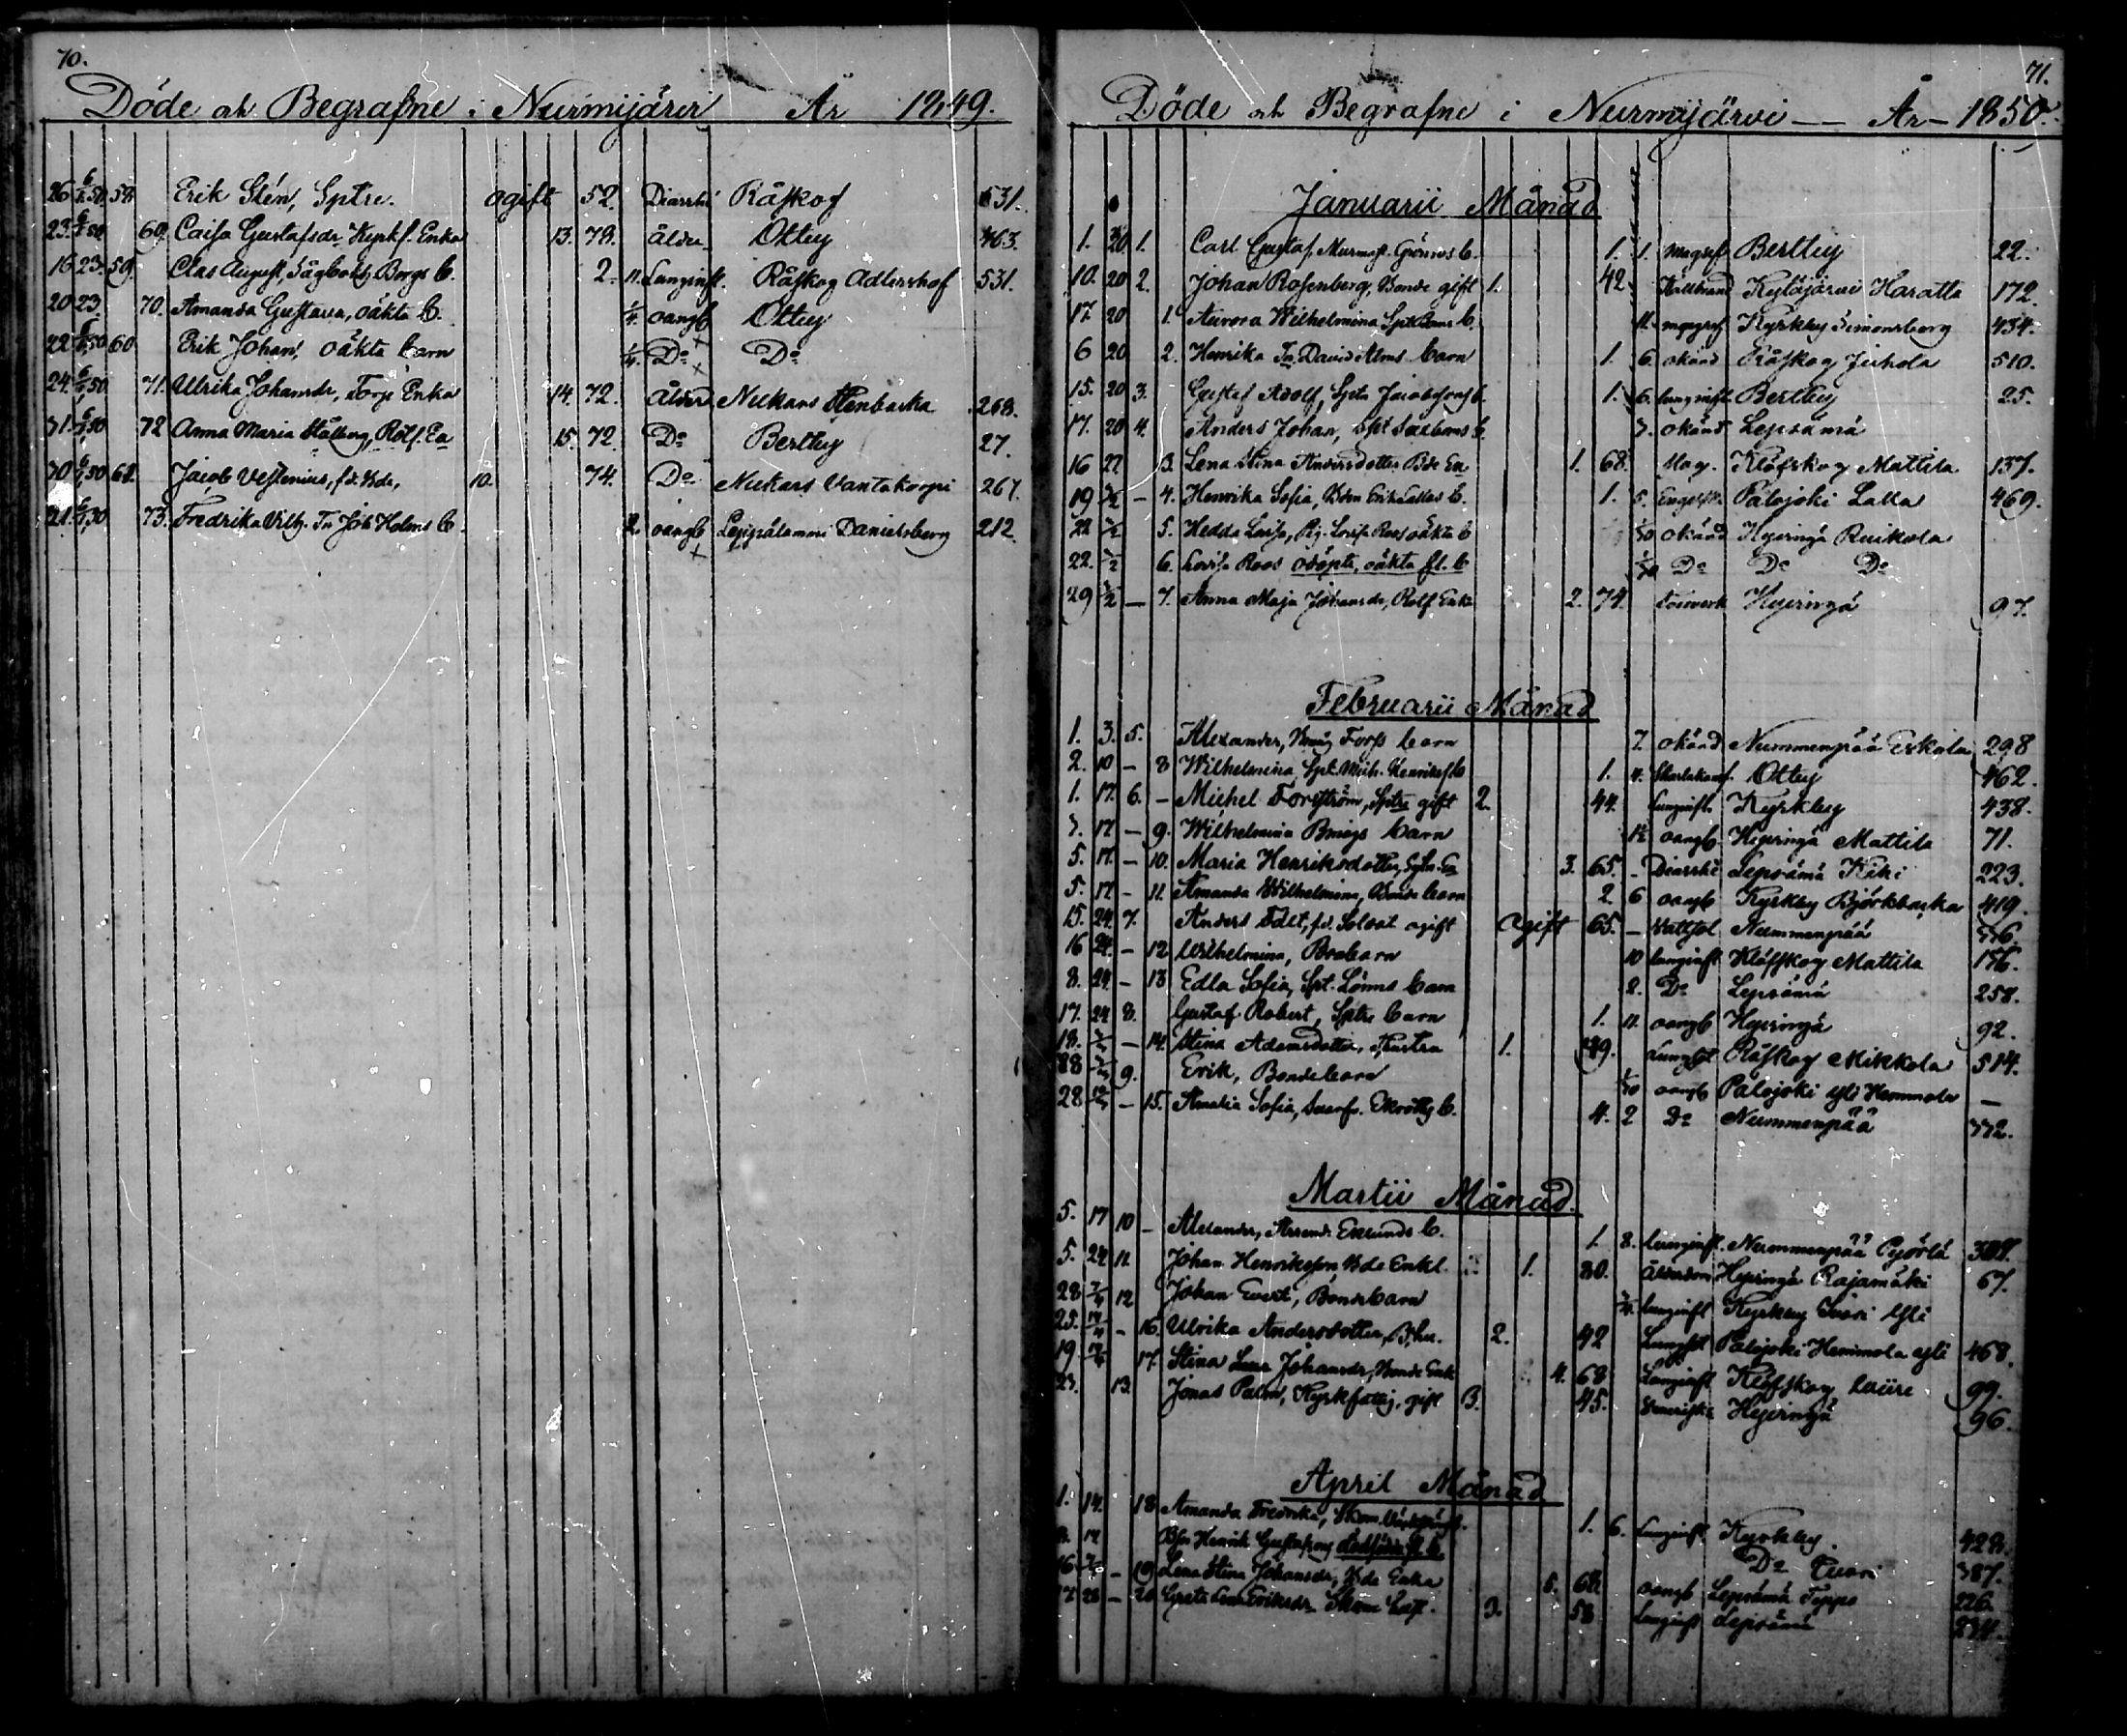 70.
Döde och Begrafne i Nurmijärvi År 1849.
26 6/1 50 59 Erik Glén, Sptre. ogift 52. Diarrhé Råskog 531.
23. 6/1 50 69. Caisa Gustafsdr Kyrkf. Enka 13. 79. ålder Ottby 463.
16 23. 59. Clas August, Sågbokh. Borgs b. 2. 11. Lunginfl. Råskog Adlershof 531.
20 23. 70. Amanda Gustava, oäkta b. 1/4. oangb Ottby
22 6/1 50 60 Erik Johan, oäkta barn 1/4. Do Do
24. 6/1 50 71. Ulrika Johansdr, Torp. Enka 14. 72. ålderd Nukars Stenbacka 268.
31. 6/1 50 72 Anna Maria Stålberg, Rotf. Ea 15. 72. Do Bertby 27.
30 6/1 50 61. Jacob Vestenius, f.d. Bde, 10. 74. Do Nukars Vantakorpi 267.
21. 6/1 50 73. Fredrika Vilh. Tn Joh Holms b. 2. oangb Leppälammi Danielsberg 212.
71.
Döde och Begrafne i Nurmijärvi — År — 1850.
Januarii Månad
1. 20. 1. Carl Gustaf, Murmest. Grönros b. 1. 1. Magref Bertby 22.
10. 20 2. Johan Rosenberg, Bonde gift 1. 42. Kallbrand Kytäjärvi Haratta 172.
17. 20 1. Aurora Wilhelmina 11. magref Kyrkby Simonsberg 434.
6 20 2. Henrika Tn David Alms barn 1. 6. okänd Råskog Juhola 510.
15. 20 3. Gustaf Adolf, Sptr Jacobssons b. 1. 6. lunginfl. Bertby 25.
17. 20 4. Anders Johan, 3. okänd Lepsämä
16 27 3. Lena Stina Andersdotter Bde En 1. 68. Mag. Klöfskog Mattila 137.
19 3/2 — 4. Henrika Sofia, Bdn Erik Lallas b. 1. 5. Engelsk. Palojoki Lalla 469.
22 3/2 5. Hedda Lovisa, Pig. Lovisa Roos oäkta b 1/30 okänd Hyvingä Ruikola
22. 3/2 6. Lovisa Roos odöpte, oäkta fl. b 1/30 Do Do Do
29 3/2 — 7. Anna Maja Johansdr, Rotf Enka 2. 74. Hyvingä 97.
Februarii Månad
1. 3. 5. Alexander, Forss barn 7. okänd Nummenpää Eskola 298
2. 10 — 8 Wilhelmina, Spt. Mich. Henriks b 1. 4. Skarlakansf. Ottby 462.
1. 17. 6. — Michel Forsström, Sptre gift 2. 44. lunginfl. Kyrkby 438.
3. 17 — 9. Wilhelmina Bmågs barn 1/2 oangb. Hyvingä Mattila 71.
5. 17. — 10. Maria Henriksdotter, Sytn. Ea 3. 65. — Diarrhé Lepsämä Kiki 223.
5. 17 — 11. Amanda Wilhelmina, Bonde barn 2 6 oangb Kyrkby Björkbacka 419.
15. 24. 7. Anders Fält, f.d. Soldat ogift ogift 65. — Vattsot Nummenpää 336.
16 24. — 12 Wilhelmina, Bdebarn 10 lunginfl. Klöfskog Mattila 156.
8. 24. — 13 Edla Sofia, Spt. Lönns barn 2. Do Lepsämä 258.
17. 24 8. Gustaf Robert, Sptre barn 1. 11. oangb Hyvingä 92.
18. 3/3 — 14. Stina Adamsdotter, Hustru 1. 39. lungsot Råskog Mikkola 514.
28 3/3 9. Erik, Bondebarn 1/30 oangb Palojoki yli Hemmola —
28 — 15. Amalia Sofia, 4. 2 Do Nummenpää 332.
Martii Månad.
5. 17 10 — Alexander, Arrend. Enlunds b. 1. 8. lunginfl. Nummenpää Pyörlä 307.
5. 24 11. Johan Henriksson Bde Enkl. 1. 80. Ålderdom Hyvingä Rajamäki 67.
28 7/4 12 Johan Evert, Bondebarn lunginfl Kyrkby Suori yli
25. 14/4 — 16. Ulrika Andersdotter, B. hu. 2. 42 Lungsot Palojoki Hemmola yli 468.
19 14/4 17. Stina Lena Johansdr, Bonde Enk 4. 68 lunginfl Klöfskog Uure 99.
23. 13. Jonas Palm, Kyrkfattig, gift 3. 45. Hyvingä 96.
April Månad
1. 14. 18 Amanda Fredrika, 1. 6. lunginfl. Kyrkby. 428.
14 Bsn Henrik Gustafsons dödfödde fl. b. Do Suori 387.
16 — 19 Lena Stina Johansdr, Bde Enka 5. 68. oangb Lepsämä Teppo 226.
28 — 20 Greta Lena Eriksdr 3. 58 lunginfl Lepsämä